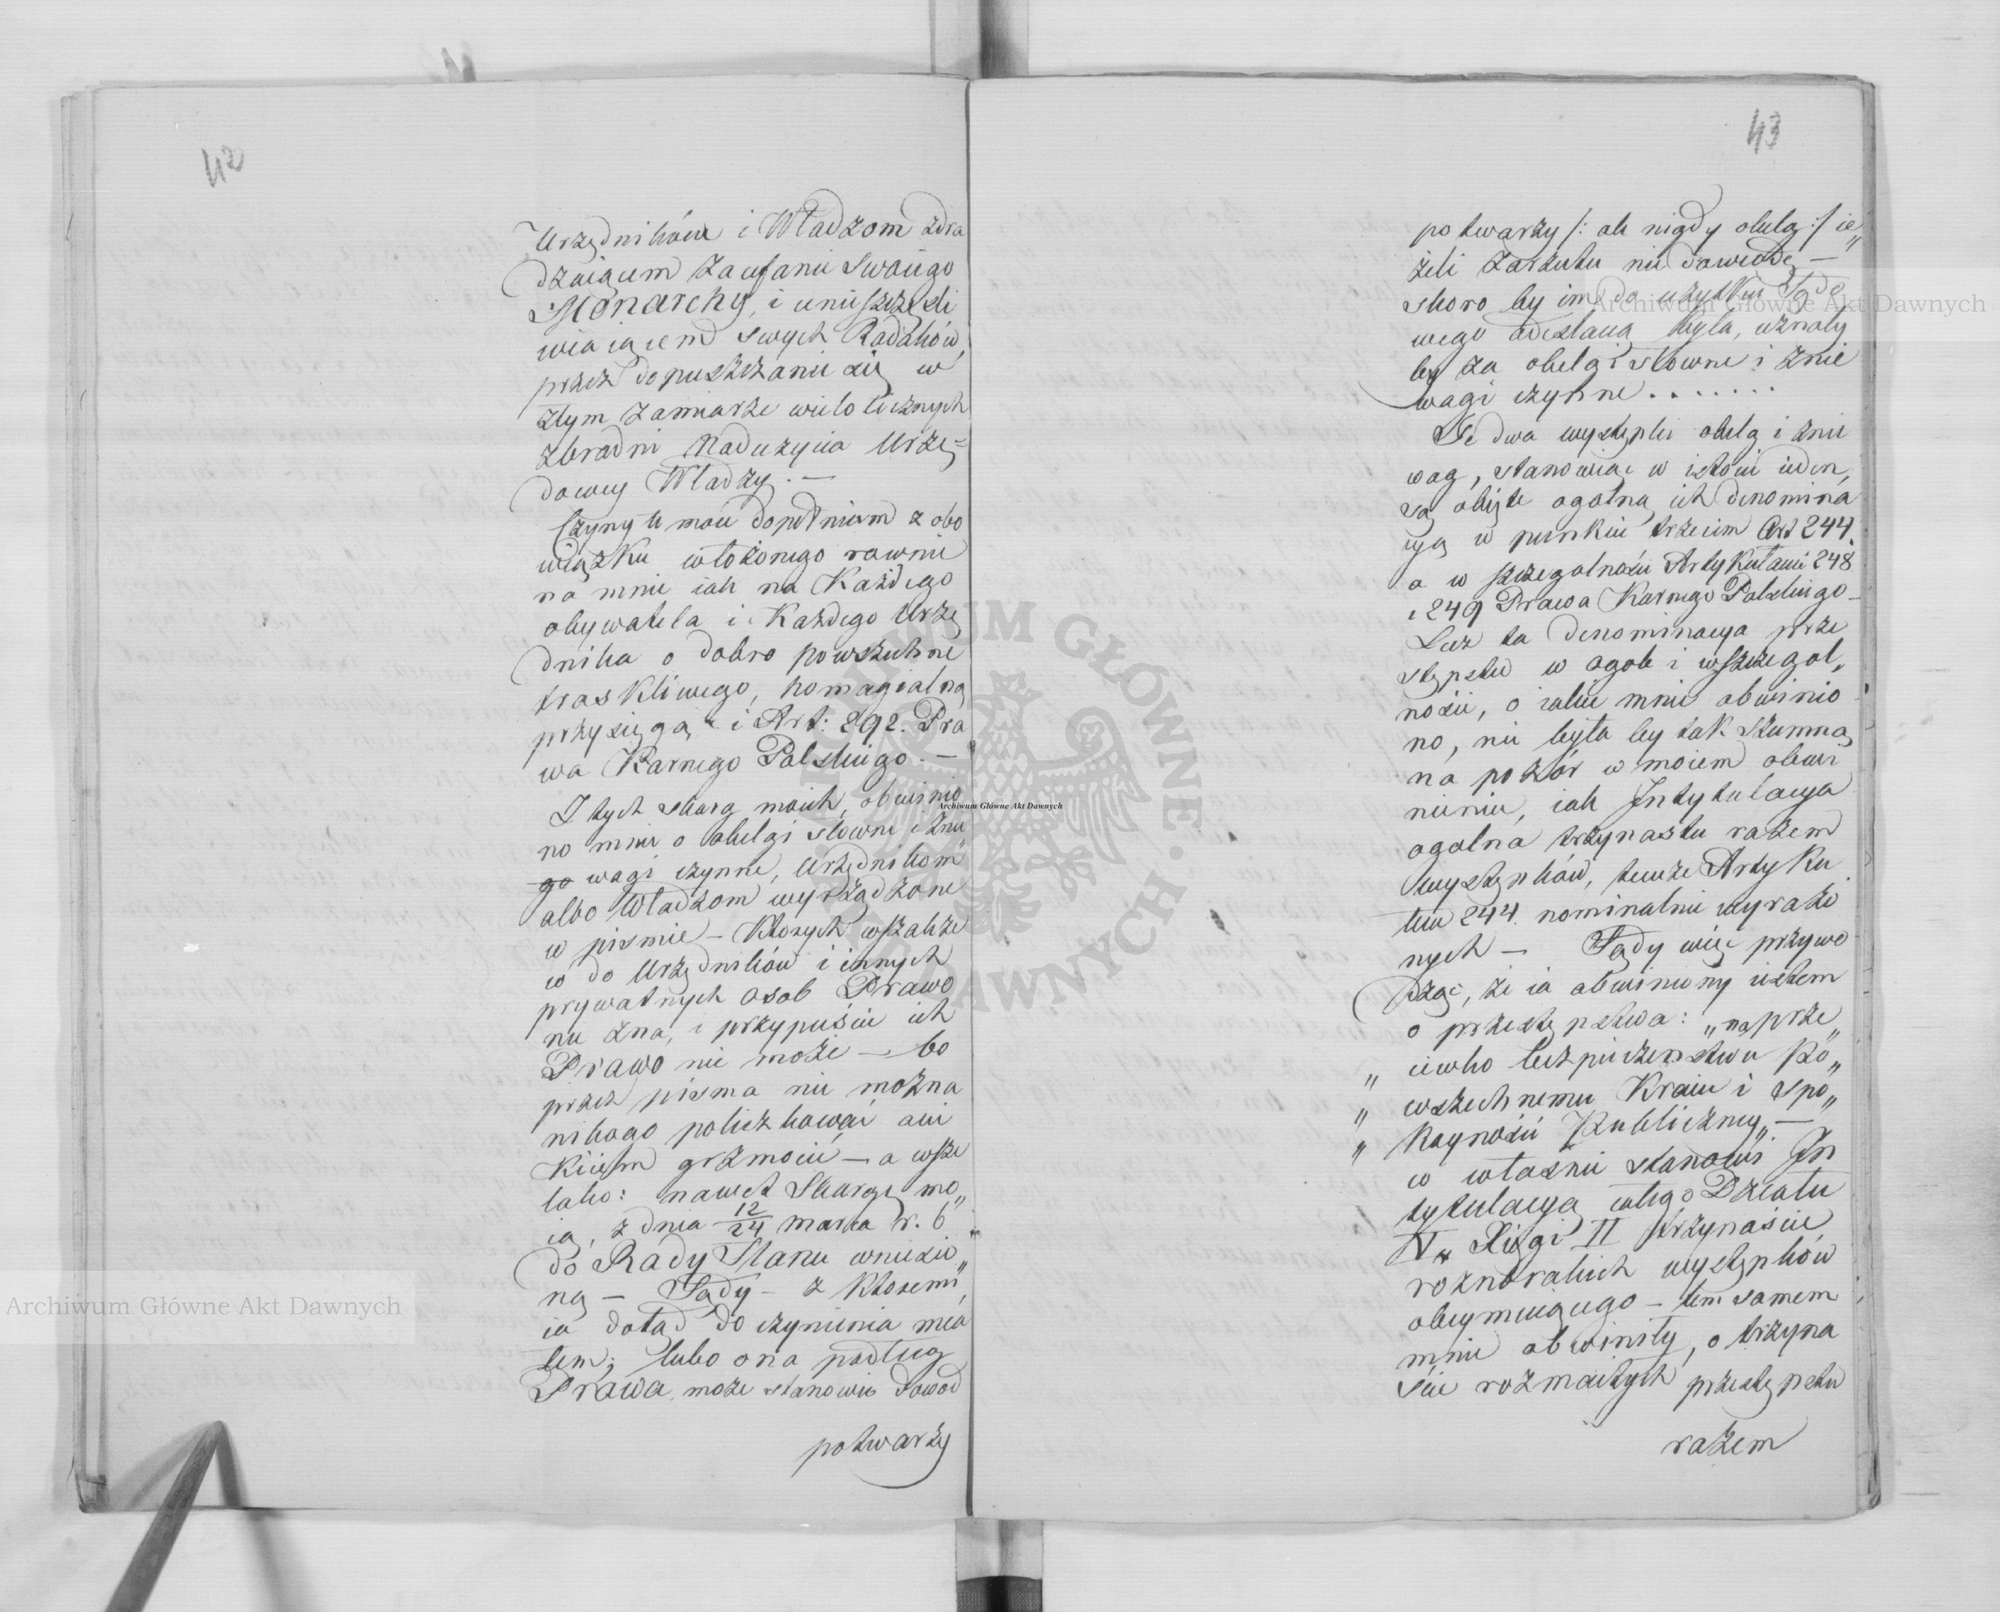 42
Urzędników i Władzom zdra
dzaiącem zaufanie Swoiego
Monarchy, i unieszczęśli
wiaiącem swych Rodaków,
przez dopuszczanie się w
złym zamiarze wielolicznych
zbrodni Nadużycia Urzę=
dowey Władzy. —
Czyny te moie dopełniam z obo
wiązku włożonego rownie
na mnie iak na Każdego
obywatela i Każdego Urzę
dnika o dobro powszechne
troskliwego, homagialną
przysięgą i Art: 292. Pra
wa Karnego Polskiego. —
Z tych skarg moich, obwinio
no mnie o obelgi słowne i znie
wagi czynne, Urzędnikom
albo Władzom wyrządzone
w piśmie — Których wszakże
w do Urzędników i innych
prywatnych osob Prawo
nie zna, i przypuście ich
Prawo nie może — bo
przez pisma nie można
nikogo policzkować ani
Kiiem grzmocić — a wsze
lako: nawet Skargę mo„
ią, z dnia 12/24 marca r. b
do Rady Stanu wniesio„
ną — Sądy — z Któremi,
ia dotąd do czynienia mia
łem; lubo ona podług
Prawa może stanowić dowod
potwarzy
43
potwarzy /: ale nigdy obelg :/ ie„
żeli zarzutu nie dowiodę —
skoro by im do użytku Sądo
wego odesłaną była, uznały
by za obelgi słowne i znie
wagi czynne . . . . . . .
Te dwa występki obelg i znie
wag, stanowiąc w istocie ieden,
są obięte ogolną ich denomina
cyą w punkcie trzecim Art 244.
a w szczegolności Artykułami 248
i 249 Prawa Karnego Polskiego —
Lecz ta denominacya prze
stępstw w ogole i w szczegol„
ności, o iakie mnie obwinio
no, nie była by tak szumną
na pozór w moiem obwi
nieniu, iak Intytulacya
ogolna trzynastu razem
występków, temże Artyku
łem 244. nominalnie wyrażo
nych — Sądy więc przywo
dząc, że ia obwiniony iestem
o przestępstwa: „na prze„
„ ciwko bezpieczeństwu Po„
„ wszechnemu Kraiu i spo„
„ koyności Publiczney„ —
co własnie stanowi In
tytulacyą całego Działu
V. Xięgi II trzynaście
roznorakich występków
obeymuiącego — tem samem
mnie obwiniły, o trzyna
ście rozmaitych przestępstw
razem
Archiwum Główne Akt Dawnych
Archiwum Główne Akt Dawnych
Archiwum Główne Akt Dawnych
ARCHIWUM GŁÓWNE AKT DAWNYCH